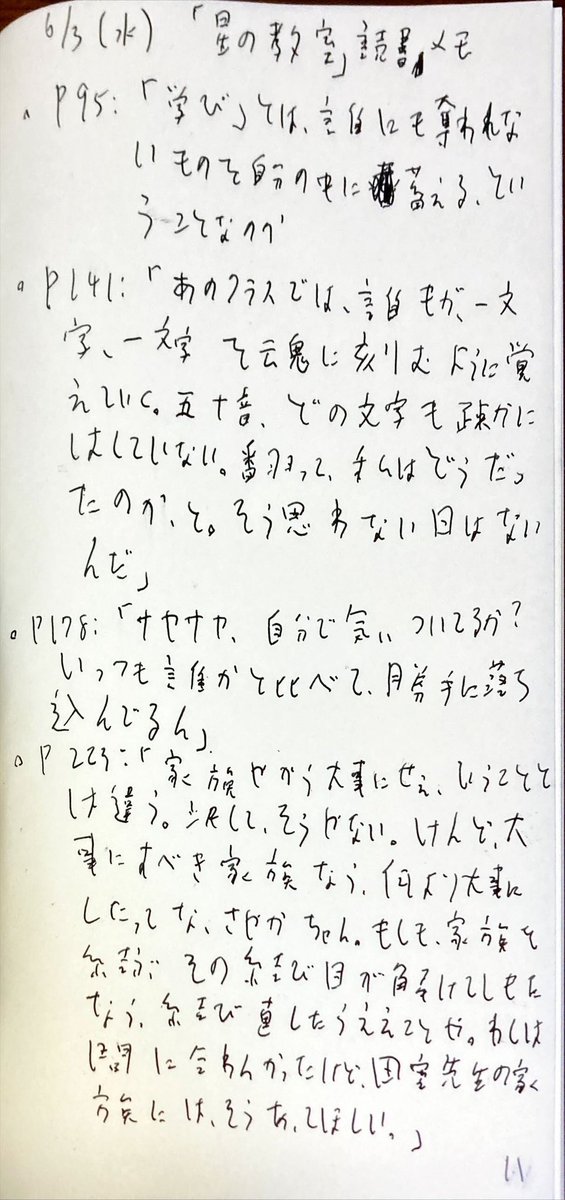 6/3(水) 「星の教室」読書メモ
。P95:「「学び」とは、誰にも奪われな
いものを自分の中に蓄える、とい
うことなのか
。P141:「あのクラスでは、誰もが、一文
字、一文字を云鬼に刻むように覚
えていく。五十音、どの文字も疎かに
はしていない。翻って、私はどうだっ
たのか、と。そう思わない日はない
んだ」
。P178:「サヤサヤ、自分で気ぃついてるか?
いっつも誰かと比べて、勝手に落ち
込んでるん」
。P223:「家族やから大事にせぇ、いうことと
は違う。決して、そうやない。けんど、大
事にすべき家族なら、何より大事に
したってな、さやかちゃん。もしも、家族を
結ぶその結び目が解けてしもた
なら、結び直したらええことや。わしは
間に合わんかったけど、田宮先生の家
族には、そうあってほしい。」
11